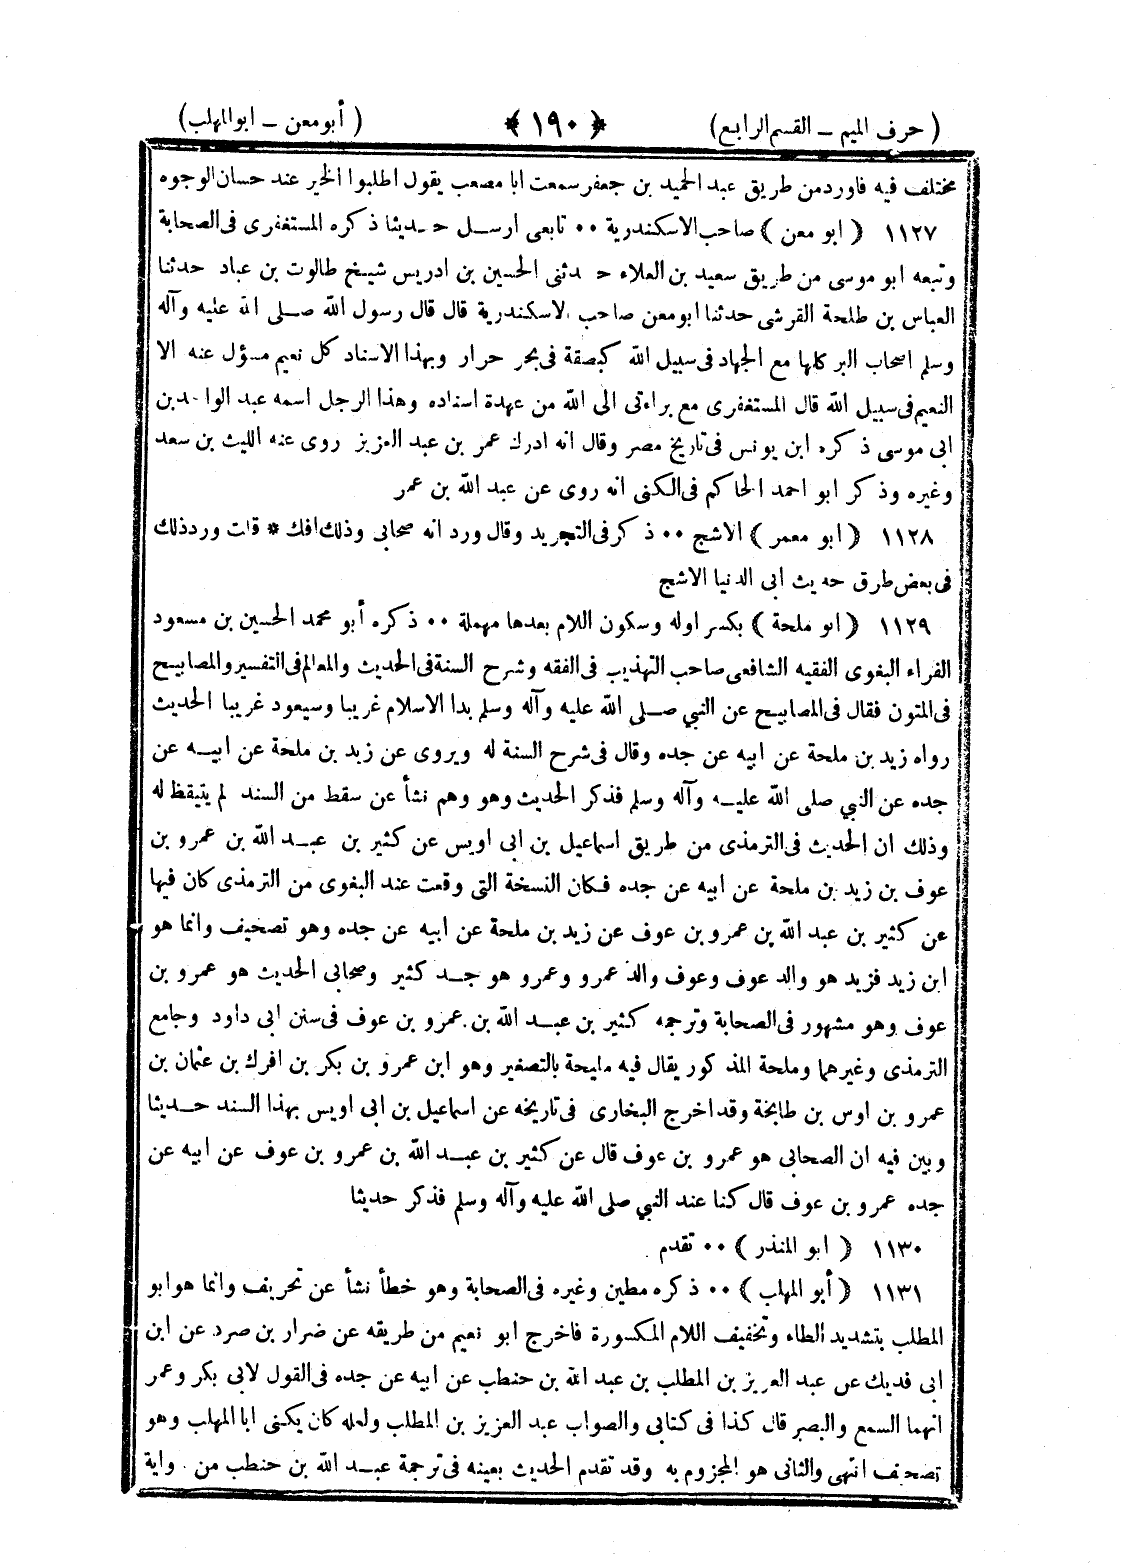 ( حرف الميم ــ القسم الرابع )
﴿ ١٩٠ ﴾
( أبو معن ــ ابو المهلب )
مختلف فيه فاورد من طريق عبد الحميد بن جعفر سمعت ابا مصعب يقول اطلبوا الخير عند حسان الوجوه
١١٢٧ ( ابو معن ) صاحب الاسكندرية ٠٠ تابعى ارسل حديثا ذكره المستغفرى فى الصحابة
وتبعه ابو موسى من طريق سعيد بن العلاء حدثنى الحسين بن ادريس شيخ طالوت بن عباد حدثنا
العباس بن طلحة القرشى حدثنا ابو معن صاحب الاسكندرية قال قال رسول الله صلى الله عليه وآله
وسلم اصحاب البر كلها مع الجهاد فى سبيل الله كبصقة فى بحر جرار وبهذا الاسناد كل نعيم مسؤل عنه الا
النعيم فى سبيل الله قال المستغفرى مع براءتى الى الله من عهدة اسناده وهذا الرجل اسمه عبد الواحد بن
ابى موسى ذكره ابن يونس فى تاريخ مصر وقال انه ادرك عمر بن عبد العزيز روى عنه الليث بن سعد
وغيره وذكر ابو احمد الحاكم فى الكنى انه روى عن عبد الله بن عمر
١١٢٨ ( ابو معمر ) الاشج ٠٠ ذكر فى التجريد وقال ورد انه صحابى وذلك افك * قلت ورد ذلك
فى بعض طرق حديث ابى الدنيا الاشج
١١٢٩ ( ابو ملحة ) بكسر اوله وسكون اللام بعدها مهملة ٠٠ ذكره أبو محمد الحسين بن مسعود
الفراء البغوى الفقيه الشافعى صاحب التهذيب فى الفقه وشرح السنة فى الحديث والمعالم فى التفسير والمصابيح
فى المتون فقال فى المصابيح عن النبي صلى الله عليه وآله وسلم بدا الاسلام غريبا وسيعود غريبا الحديث
رواه زيد بن ملحة عن ابيه عن جده وقال فى شرح السنة له ويروى عن زيد بن ملحة عن ابيه عن
جده عن النبي صلى الله عليه وآله وسلم فذكر الحديث وهو وهم نشأ عن سقط من السند لم يتيقظ له
وذلك ان الحديث فى الترمذى من طريق اسماعيل بن ابى اويس عن كثير بن عبد الله بن عمرو بن
عوف بن زيد بن ملحة عن ابيه عن جده فكان النسخة التى وقعت عند البغوى من الترمذى كان فيها
عن كثير بن عبد الله بن عمرو بن عوف عن زيد بن ملحة عن ابيه عن جده وهو تصحيف وانما هو
ابن زيد فزيد هو والد عوف وعوف والد عمرو وعمرو هو جد كثير وصحابى الحديث هو عمرو بن
عوف وهو مشهور فى الصحابة وترجمه كثير بن عبد الله بن عمرو بن عوف فى سنن ابى داود وجامع
الترمذى وغيرهما وملحة المذكور يقال فيه مليحة بالتصغير وهو ابن عمرو بن بكر بن افرك بن عثمان بن
عمرو بن اوس بن طابخة وقد اخرج البخارى فى تاريخه عن اسماعيل بن ابى اويس بهذا السند حديثا
وبين فيه ان الصحابى هو عمرو بن عوف قال عن كثير بن عبد الله بن عمرو بن عوف عن ابيه عن
جده عمرو بن عوف قال كنا عند النبي صلى الله عليه وآله وسلم فذكر حديثا
١١٣٠ ( ابو المنذر ) ٠٠ تقدم
١١٣١ ( أبو المهلب ) ٠٠ ذكره مطين وغيره فى الصحابة وهو خطأ نشأ عن تحريف وانما هو ابو
المطلب بتشديد الطاء وتخفيف اللام المكسورة فاخرج ابو نعيم من طريقه عن ضرار بن صرد عن ابن
ابى فديك عن عبد العزيز بن المطلب بن عبد الله بن حنطب عن ابيه عن جده فى القول لابى بكر وعمر
انهما السمع والبصر قال كذا فى كتابى والصواب عبد العزيز بن المطلب ولعله كان يكنى ابا المهلب وهو
تصحيف انتهى والثانى هو المجزوم به وقد تقدم الحديث بعينه فى ترجمة عبد الله بن حنطب من رواية